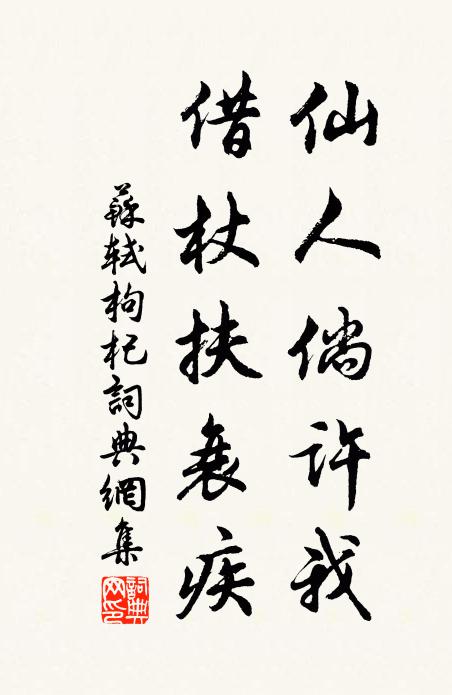 仙人倘许我
借杖扶衰疾
蘇軾枸杞詞典網集
詞典网印